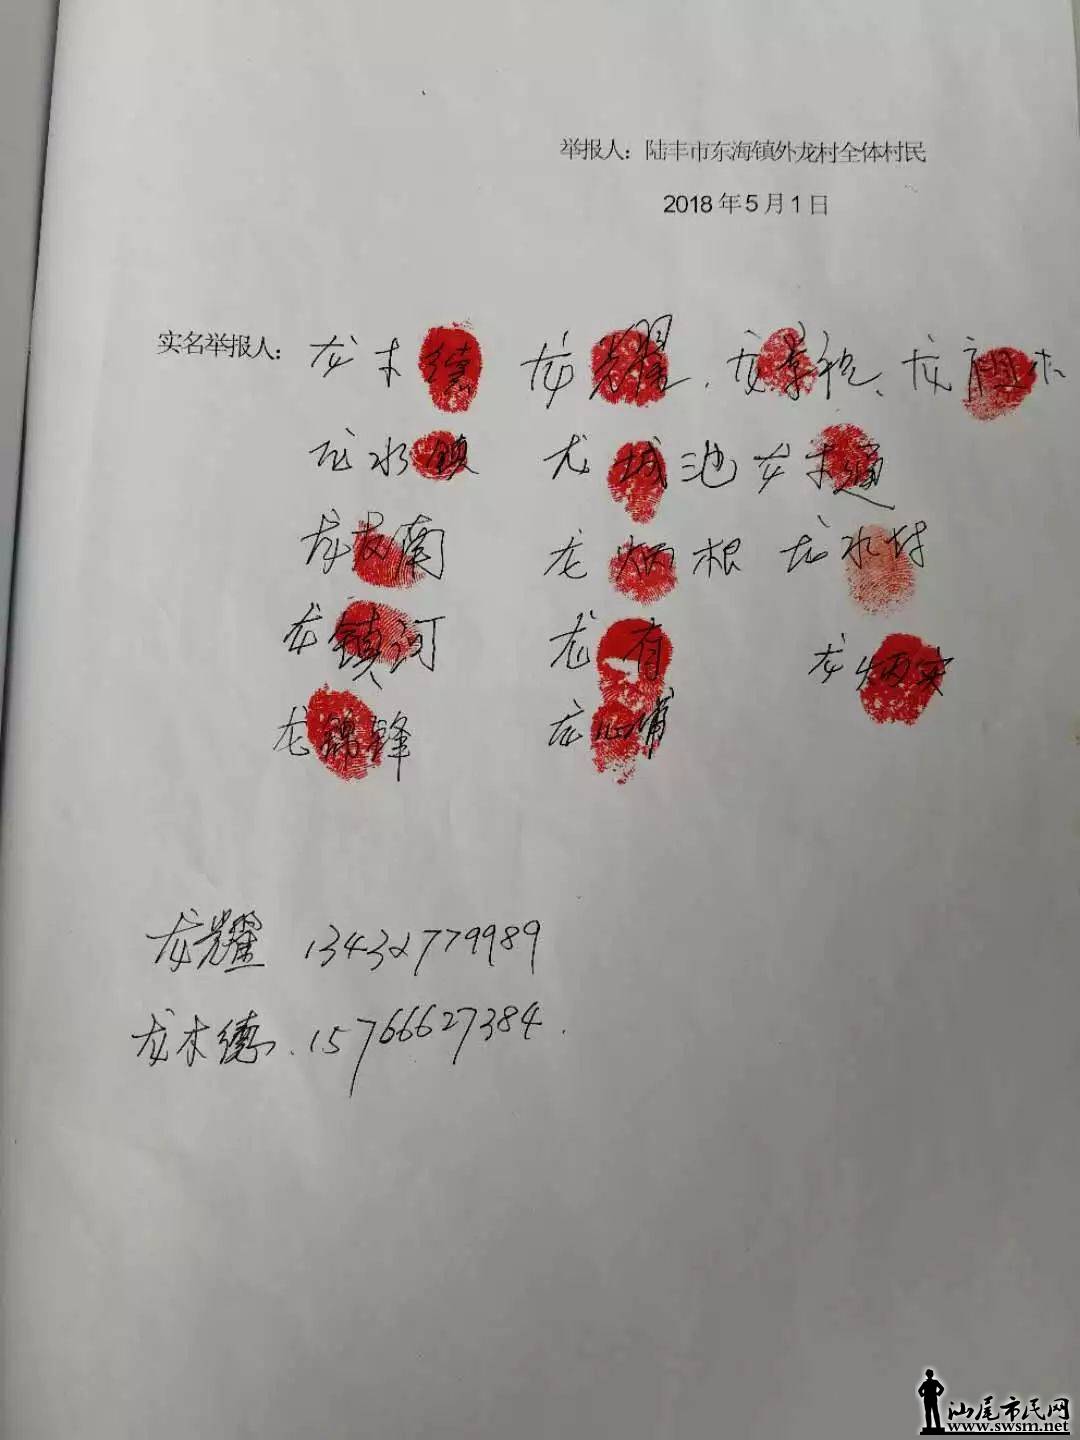 举报人：陆丰市东海镇外龙村全体村民
2018年5月1日
实名举报人：龙木德 龙耀、龙 龙祖木
龙水镇 龙城池 龙木通
龙友南 龙炳根 龙水
龙镇河 龙有 龙炳
龙锦锋 龙
龙耀 13432779989
龙木德.15766627384.
汕尾市民网
www.swsm.net